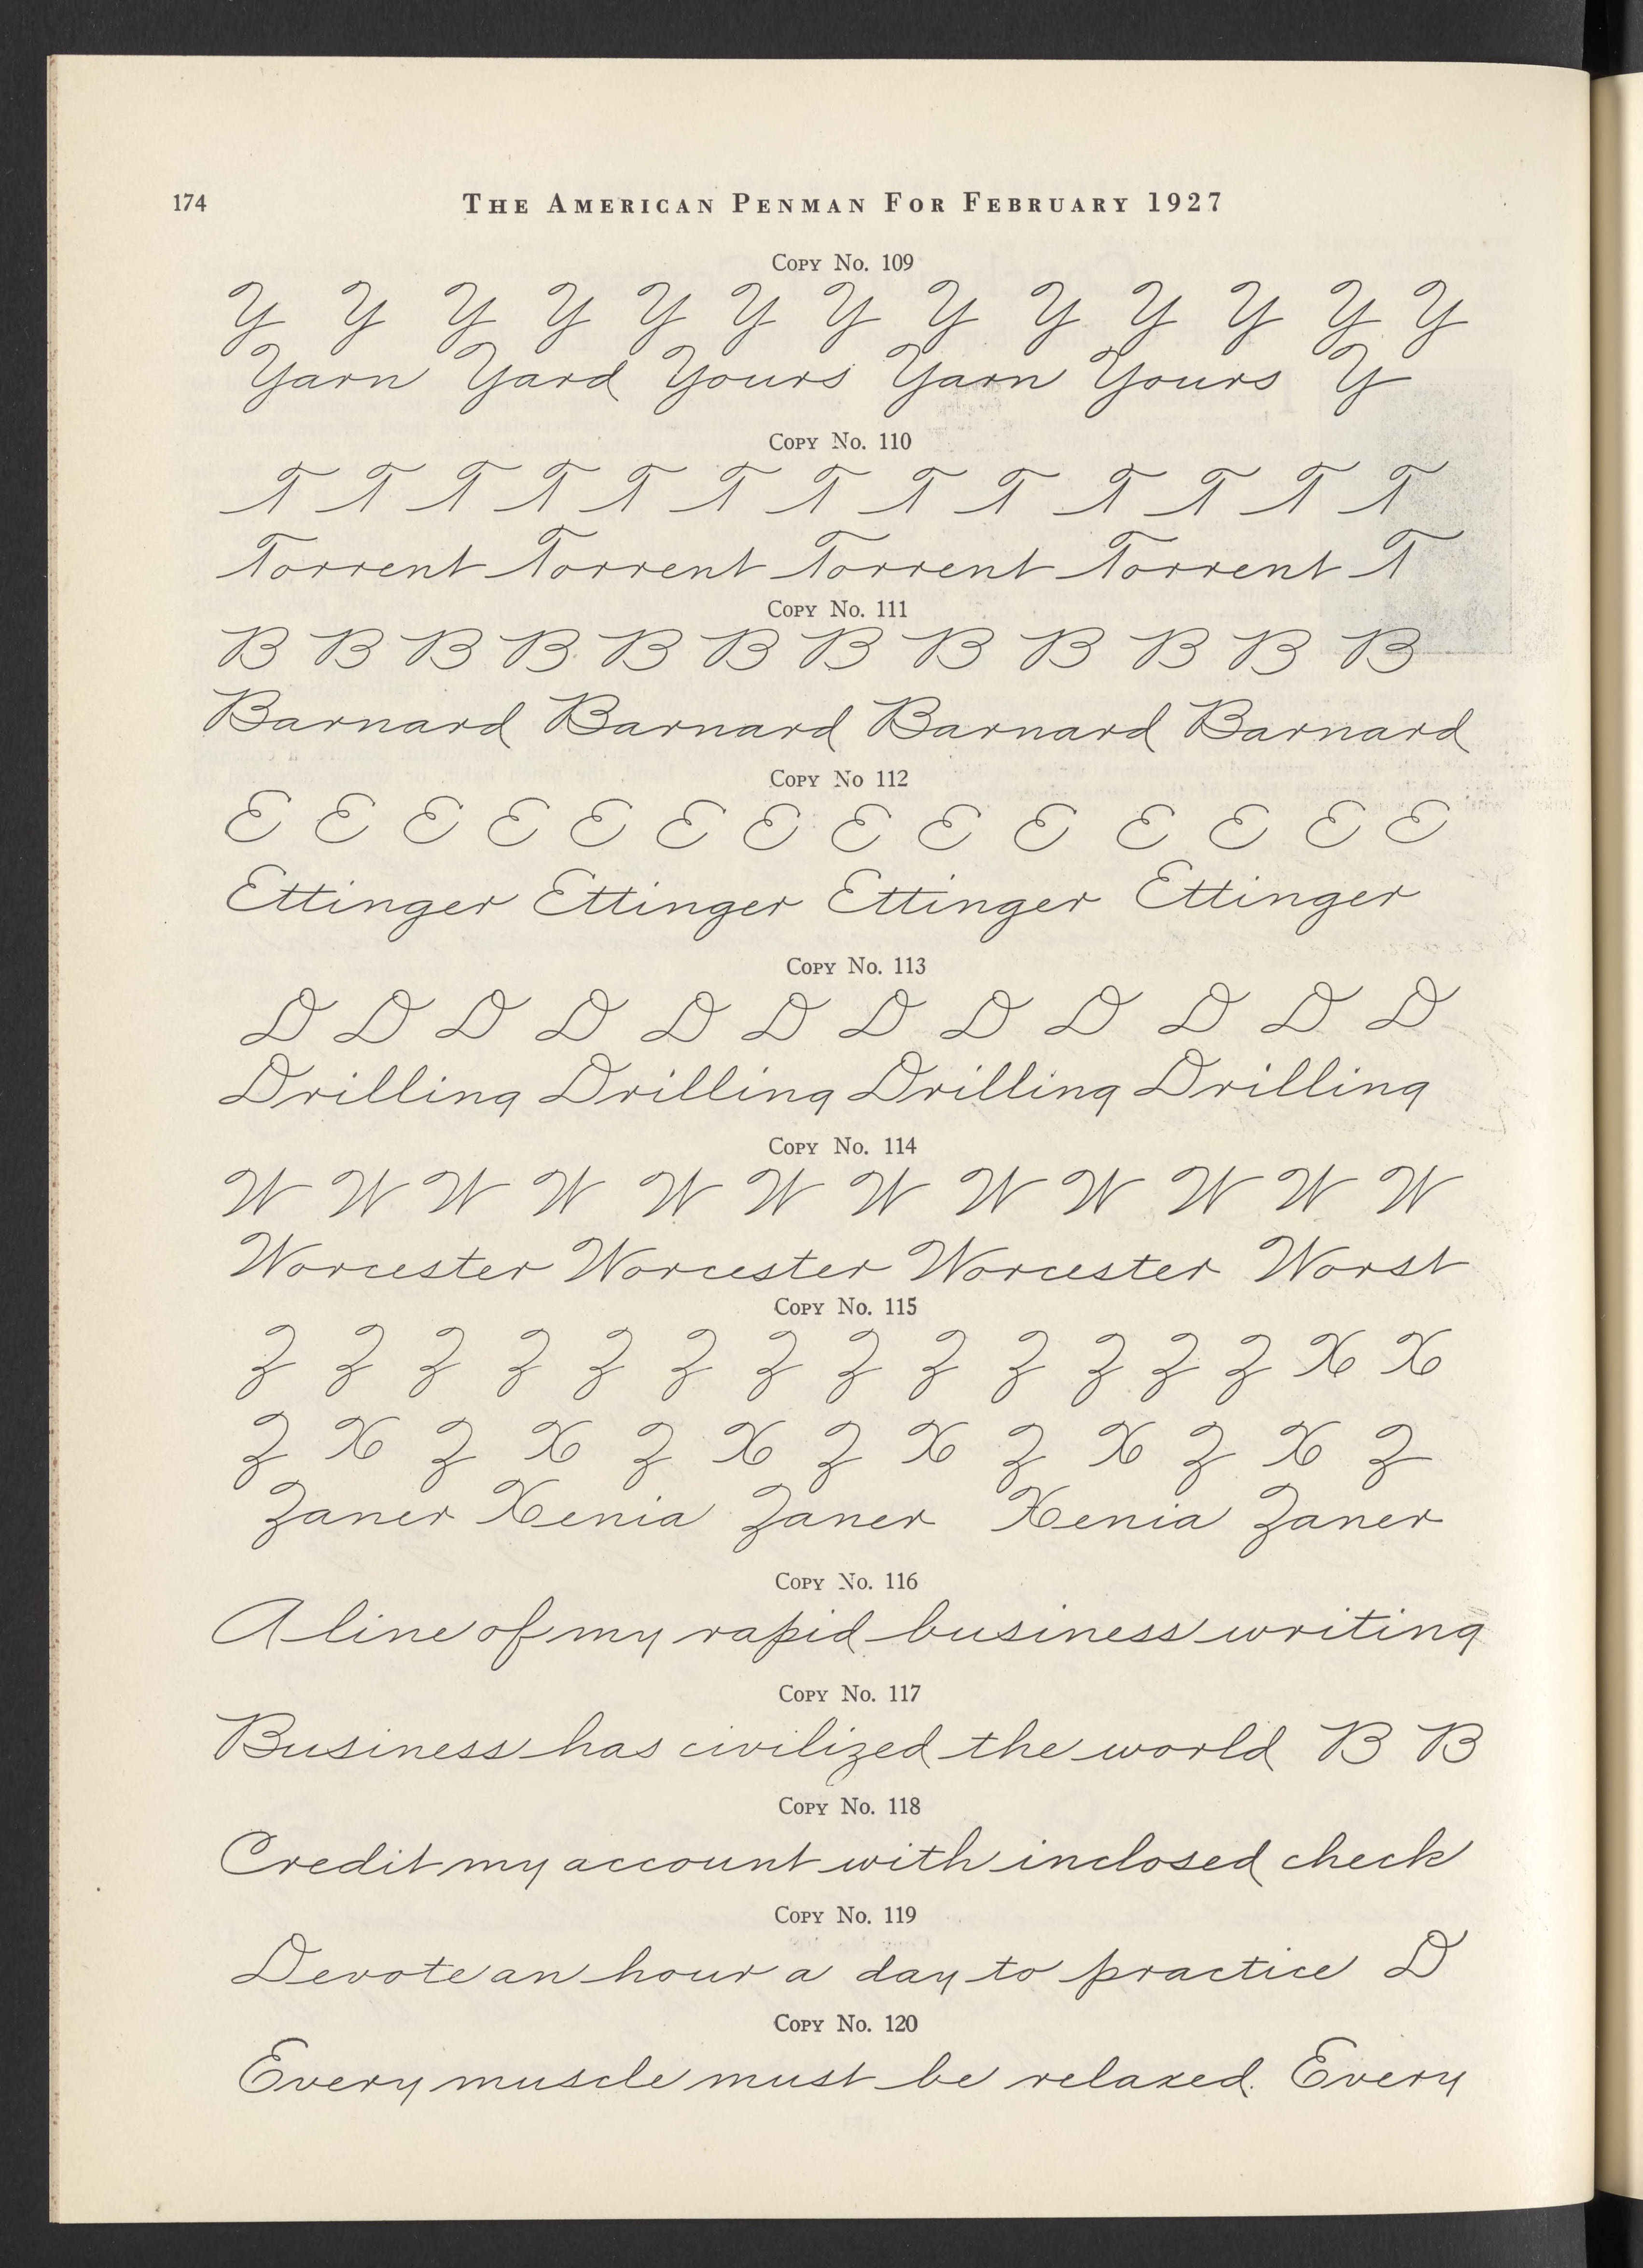 174
THE AMERICAN PENMAN FOR FEBRUARY 1927
COPY No. 109
Y Y Y Y Y Y Y Y Y Y Y Y Y
Yarn Yard Yours Yarn Yours Y
COPY No. 110
T T T T T T T T T T T T T
Torrent Torrent Torrent Torrent T
COPY No. 111
B B B B B B B B B B B B
Barnard Barnard Barnard Barnard
COPY No 112
E E E E E E E E E E E E E E
Ettinger Ettinger Ettinger Ettinger
COPY No. 113
D D D D D D D D D D D D
Drilling Drilling Drilling Drilling
COPY No. 114
W W W W W W W W W W W W
Worcester Worcester Worcester Worst
COPY No. 115
Z Z Z Z Z Z Z Z Z Z Z Z Z X X
Z X Z X Z X Z X Z X Z X Z
Zaner Xenia Zaner Xenia Zaner
COPY No. 116
A line of my rapid business writing
COPY No. 117
Business has civilized the world B B
COPY No. 118
Credit my account with inclosed check
COPY No. 119
Devote an hour a day to practice D
COPY No. 120
Every muscle must be relaxed. Every